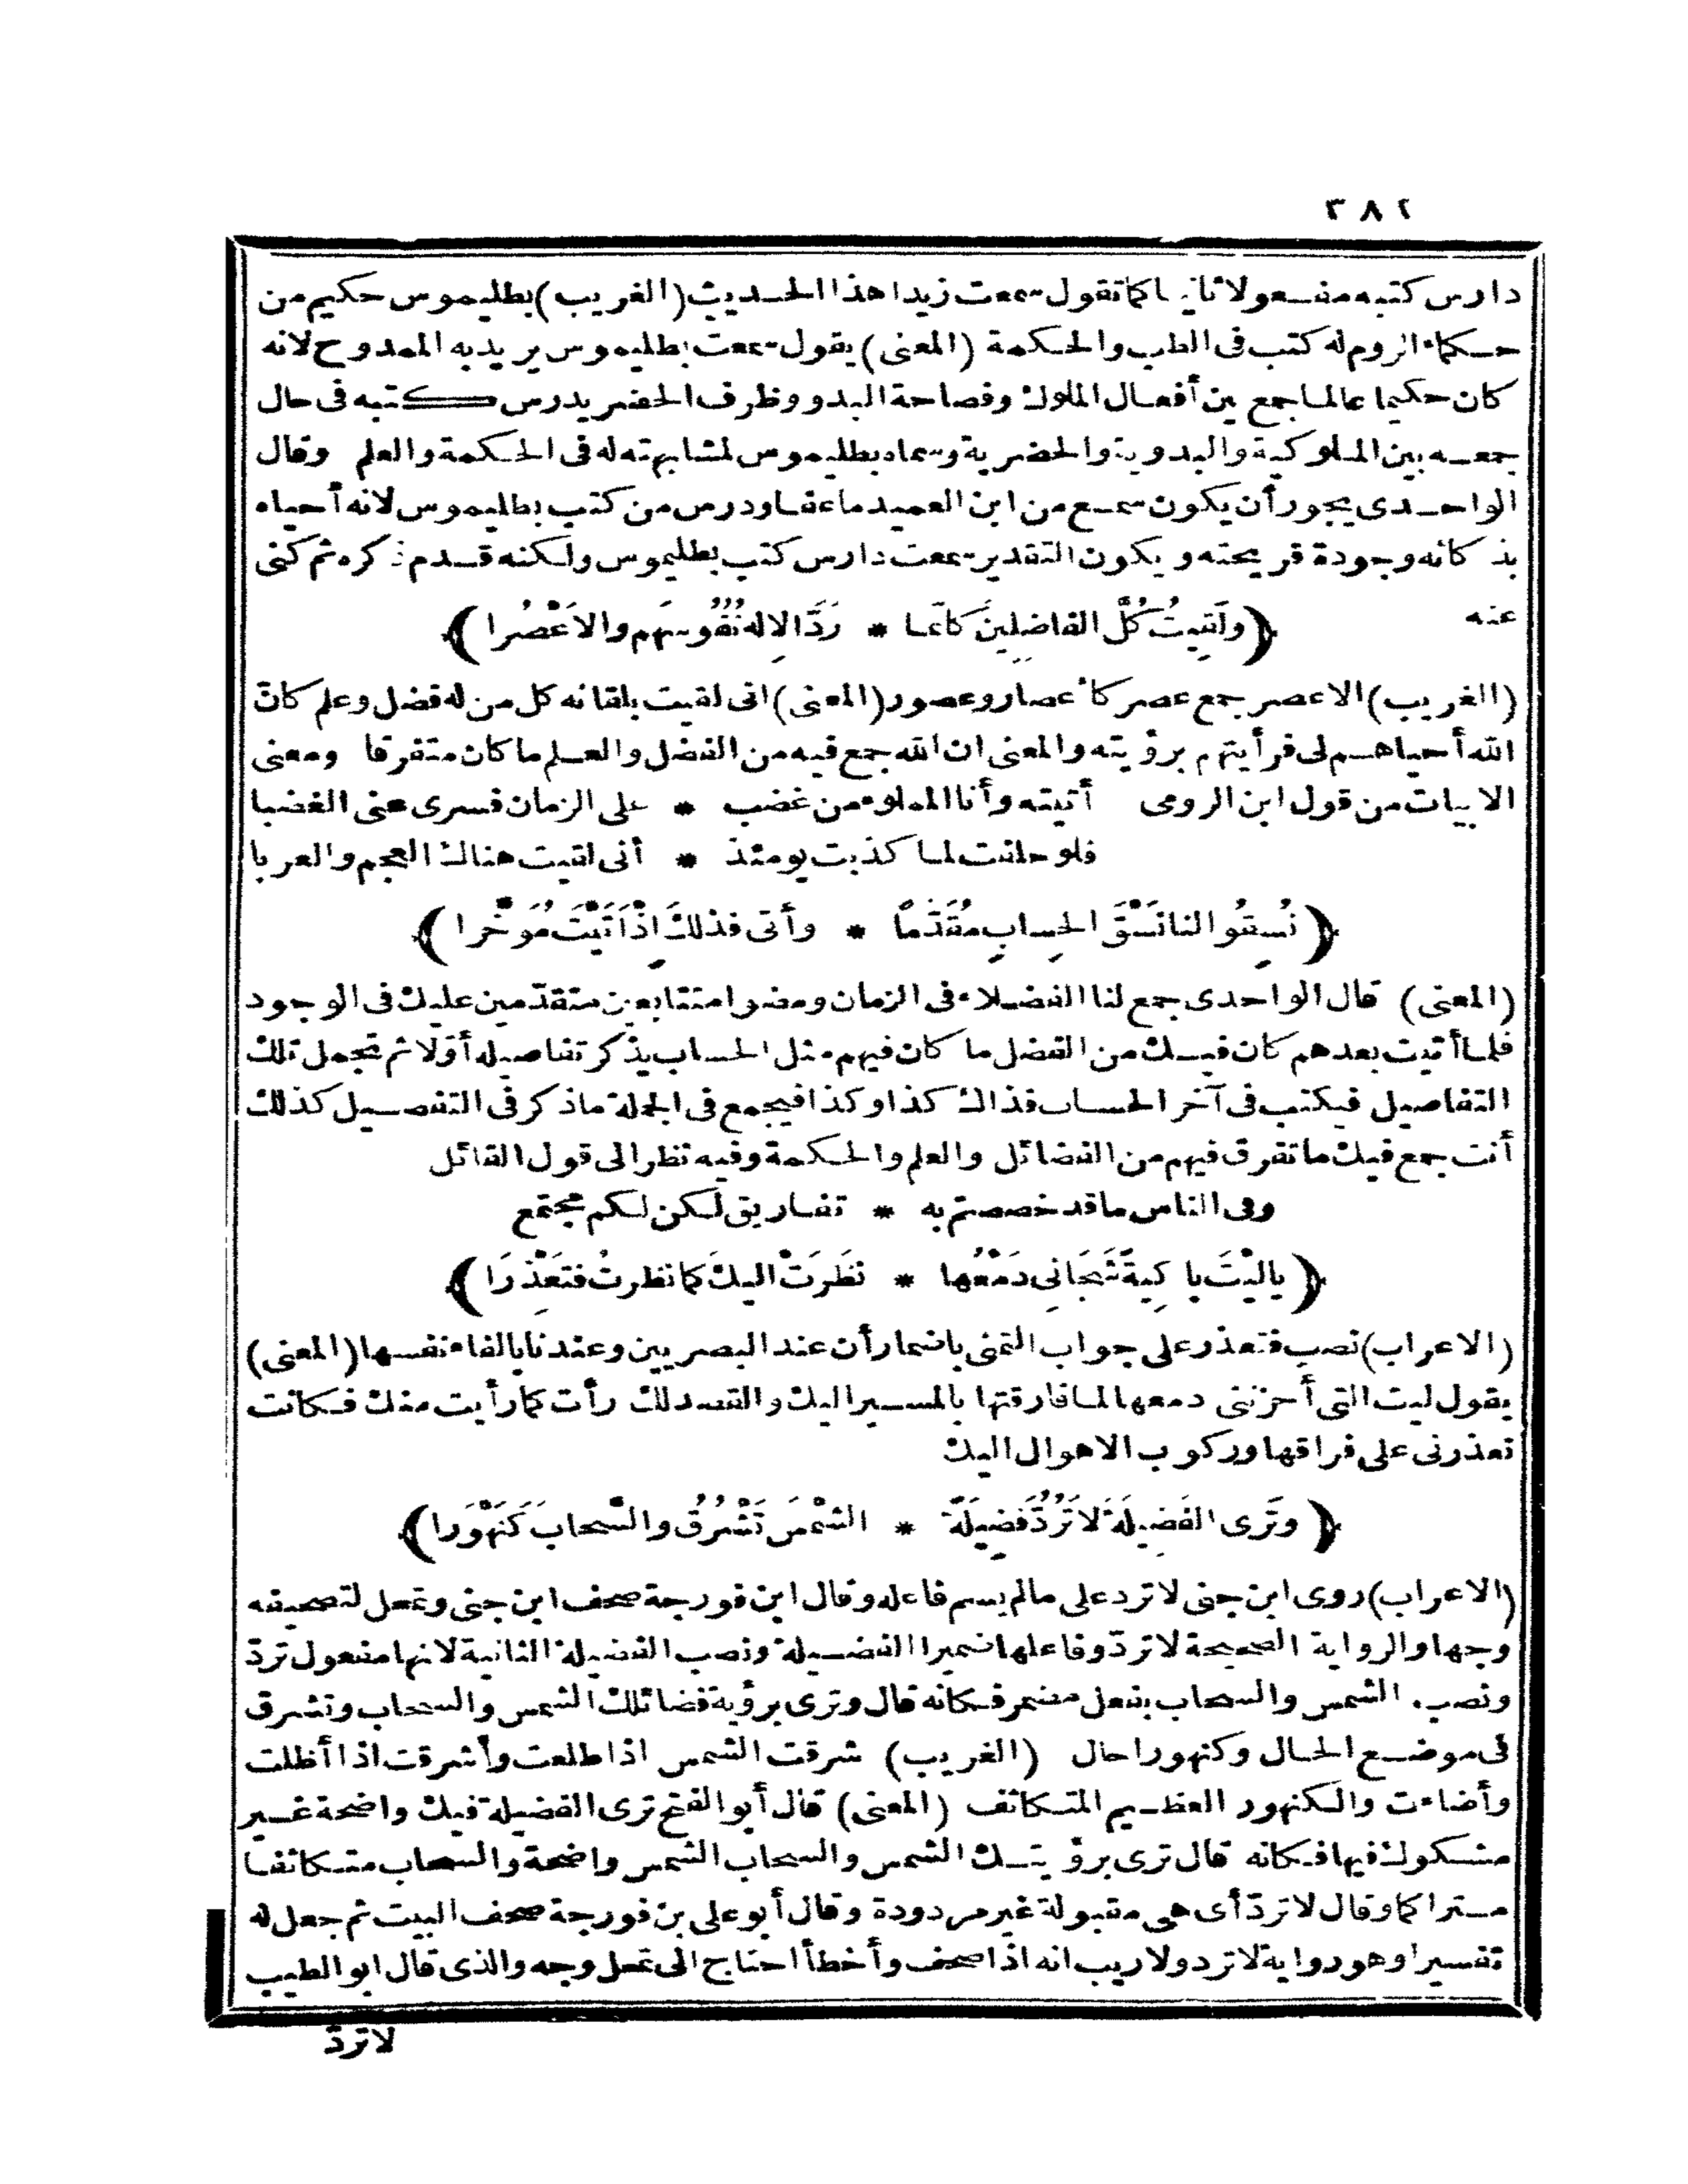 ٣٨٢
دارس كتبه مفعولا ثانيا كما تقول سمعت زيدا هذا الحديث (الغريب) بطليموس حكيم من
حكماء الروم له كتب فى الطب والحكمة (المعنى) يقول سمعت بطليموس يريد به الممدوح لانه
كان حكيما عالما جمع بين أفعال الملوك وفصاحة البدو وظرف الحضر يدرس كتبه فى حال
جمعه بين الملوكية والبدوية والحضرية وسماه بطليموس لمشابهته له فى الحكمة والعلم وقال
الواحدى يجور أن يكون سمع من ابن العميد ماعفا ودرس من كتب بطليموس لانه أحياه
بذكائه وجودة قريحته ويكون التقدير سمعت دارس كتب بطليموس ولكنه قدم ذكره ثم كنى
عنه ﴿ولَقِيتُ كُلَّ الفاضلِينَ كانّما * رَدَّ الاِلهُ نُفُوسَهُم والاَعْصُرا﴾
(الغريب) الاعصر جمع عصر كأعصار وعصور (المعنى) انى لقيت بلقائه كل من له فضل وعلم كانّ
الله أحياهم لى فرأيتهم برؤيته والمعنى ان الله جمع فيه من الفضل والعلم ما كان متفرقا ومعنى
الابيات من قول ابن الرومى أتيته وأنا المملوء من غضب * على الزمان فسرى عنى الغضبا
فلو حلفت لما كذبت يومئذ * أنى لقيت هناك العجم والعربا
﴿نُسِقُوا لنا نَسْقَ الحِسابِ مُقَدَّماً * وأتى فذلكَ اِذْ اَتَيْتَ مُؤَخَّرا﴾
(المعنى) قال الواحدى جمع لنا الفضلاء فى الزمان ومضوا متتابعين متقدّمين عليك فى الوجود
فلما أتيت بعدهم كان فيك من الفضل ما كان فيهم مثل الحساب يذكر تفاصيله أوّلا ثم تجمل تلك
التفاصيل فيكتب فى آخر الحساب فذالك كذا وكذا فيجمع فى الجملة ماذكر فى التفصيل كذلك
أنت جمع فيك ما تفرق فيهم من الفضائل والعلم والحكمة وفيه نظر الى قول القائل
وفى الناس ماقد خصصتم به * تفاريق لكن لكم مجتمع
﴿يالَيْتَ باكِيةً شَجَانِى دَمْعُها * نَظَرَتْ اليك كما نظرتُ فتَعْذِرَا﴾
(الاعراب) نصب فتعذر على جواب التمنى باضمار أن عند البصريين وعندنا بالفاء نفسها (المعنى)
يقول ليت التى أحزننى دمعها لما فارقتها بالمسير اليك والقصد لك رأت كما رأيت منك فكانت
تعذرنى على فراقها وركوب الاهوال اليك
﴿وتَرى الفَضِيلَةَ لاتَرُدُّ فَضِيلَةً * الشَّمْسَ تَشْرُقُ والسَّحابَ كَنَهْوَرا﴾
(الاعراب) روى ابن جنى لاترد على مالم يسم فاعله وقال ابن فورجة صحف ابن جنى وتمحل لتصحيفه
وجها والرواية الصحيحة لاتردّ وفاعلها ضمير الفضيلة ونصب الفضيلة الثانية لانها مفعول تردّ
ونصب الشمس والسحاب بفعل مضمر فكانه قال وترى برؤية فضائلك الشمس والسحاب وتشرق
فى موضع الحال وكنهورا حال (الغريب) شرقت الشمس اذا طلعت وأشرقت اذا أظلت
وأضاءت والكنهور العظيم المتكاثف (المعنى) قال أبو الفتح ترى الفضيلة فيك واضحة غير
مشكوك فيها فكانه قال ترى برؤيتك الشمس والسحاب الشمس واضحة والسحاب متكاثفا
متراكما وقال لاتردّ أى هى مقبولة غير مردودة وقال أبو على بن فورجة صحف البيت ثم جعل له
تفسيرا وهو رواية لاترد ولاريب انه اذا صحف وأخطأ احتاج الى تمحل وجه والذى قال ابو الطيب
لاتردّ